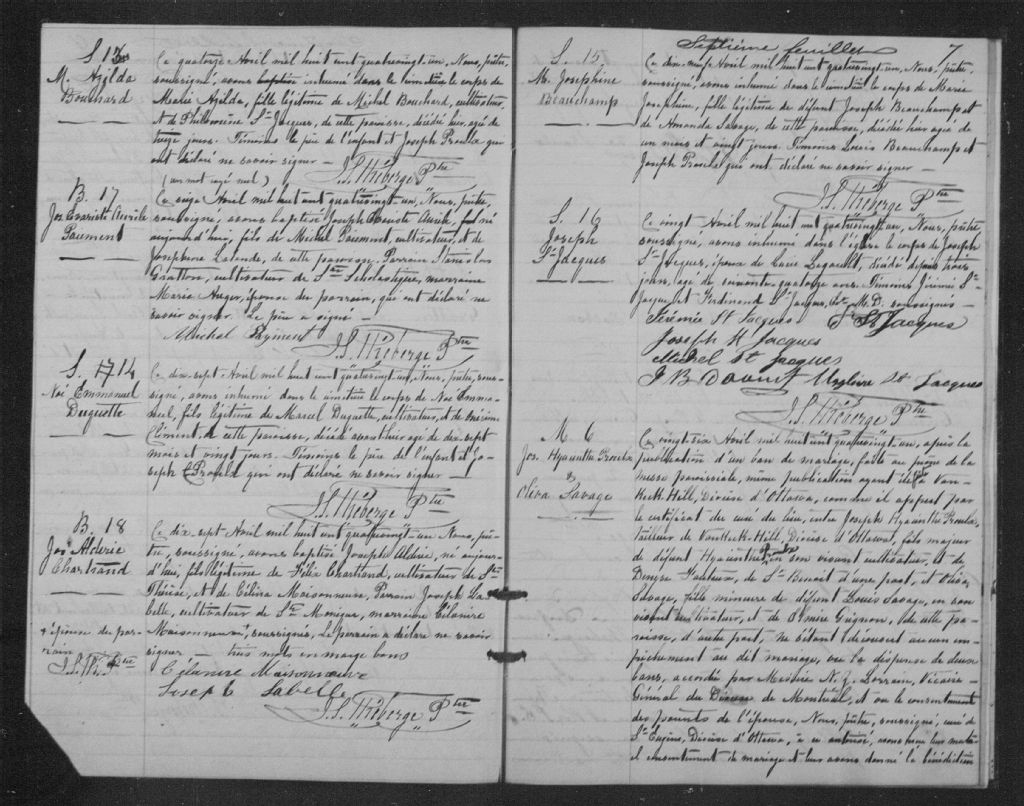 S. 13
M. Azilda
Bouchard
Ce quatorze Avril mil huit cent quatrevingt-un, Nous, prêtre,
soussigné, avons baptisé inhumé dans le cimetière le corps de
Marie Azilda, fille légitime de Michel Bouchard, cultivateur,
et de Philomène St Jacques, de cette paroisse, décédée hier, agée de
treize jours. Témoins le père de l'enfant et Joseph Proulx qui
ont déclaré ne savoir signer —
(un mot rayé nul) J. S. Théberge Ptre
B. 17
Jos. Evariste Aurèle
Paiement
Ce seize Avril mil huit cent quatrevingt-un, Nous, prêtre,
soussigné, avons baptisé Joseph Evariste Aurèle, né
aujourd'hui, fils de Michel Paiement, cultivateur, et de
Josephine Lalande, de cette paroisse. Parrain Stanislas
Gratton, cultivateur de Ste Scholastique, marraine
Marie Auger, épouse du parrain, qui ont déclaré ne
savoir signer. Le père a signé —
Michel Payment
J. S. Théberge Ptre
S. 17 14
Noé Emmanuel
Duquette
Ce dix-sept Avril mil huit cent quatrevingt-un, Nous, prêtre, sous-
signé, avons inhumé dans le cimetière le corps de Noé Emma-
nuel, fils légitime de Marcel Duquette, cultivateur, et de Onésime
Clément, de cette paroisse, décédé avant hier agé de dix-sept
mois et vingt jours. Témoins le père de l'enfant et Jo-
seph Proulx qui ont déclaré ne savoir signer —
J. S. Théberge Ptre
B. 18
Jos Aldéric
Chartrand
Ce dix-sept Avril mil huit cent quatrevingt-un Nous, prê-
tre, soussigné, avons baptisé Joseph Aldéric, né aujour-
d'hui, fils légitime de Félix Chartrand, cultivateur de Ste
Thérèse, et de Célina Maisonneuve, Parrain Joseph La-
belle, cultivateur de Ste Monique, marraine Célanire
Maisonneuve, soussignée, Le parrain a déclaré ne savoir
signer — trois mots en marge bons
x épouse du par-
rain
J. S. Th. Ptre
Célanire Maisonneuve
Joseph Labelle
J. S. Théberge Ptre
Septième feuillet 7
S. 15
M. Josephine
Beauchamp
Ce dix-neuf Avril mil huit cent quatrevingt-un, Nous, prêtre,
soussigné, avons inhumé dans le cimetière le corps de Marie
Josephine, fille légitime de défunt Joseph Beauchamp et
de Amanda Savage, de cette paroisse, décédée hier agée de
un mois et vingt jours. Témoins Louis Beauchamp et
Joseph Proulx qui ont déclaré ne savoir signer —
J. S. Théberge Ptre
S. 16
Joseph
St Jacques
Ce vingt Avril mil huit cent quatrevingt-un, Nous, prêtre
soussigné, avons inhumé dans l'église le corps de Joseph
St Jacques, époux de Lucie Legault, décédé depuis trois
jours, agé de soixante quatorze ans. Témoins Jérémie St
Jacques et Ferdinand St Jacques, M. D. soussignés —
Jérémie St Jacques F St Jacques
Joseph St Jacques
Michel St Jacques
J B Daoust St Jacques
J. S. Théberge Ptre
M 6
Jos. Hyacinthe Proulx
&
Oliva Savage
Ce vingt-six Avril mil huit cent quatrevingt-un, après la
publication d'un ban de mariage, faite au prône de la
messe paroissiale, même publication ayant été à Van-
Kleek-Hill, Diocèse d'Ottawa, comme il appert par
le certificat du curé du lieu, entre Joseph Hyacinthe Proulx,
tailleur de VanKleek-Hill, Diocèse d'Ottawa, fils majeur
de défunt Hyacinthe Proulx en son vivant cultivateur et de
Denyse Fauteux, de St Benoit d'une part, et Oliva
Savage, fille mineure de défunt Louis Savage, en son
vivant cultivateur, et de Gagnon, de cette pa-
roisse, d'autre part, ne s'étant découvert aucun em-
pêchement au dit mariage, vu la dispense de deux
bans, accordée par Messire N. Z. Lorrain, Vicaire-
Général du Diocèse de Montréal, et vu le consentement
des parents de l'épouse, Nous, prêtre, soussigné, curé de
St Eugène, Diocèse d'Ottawa, à ce autorisé, avons reçu leur mutu-
el consentement de mariage et leur avons donné la bénédiction